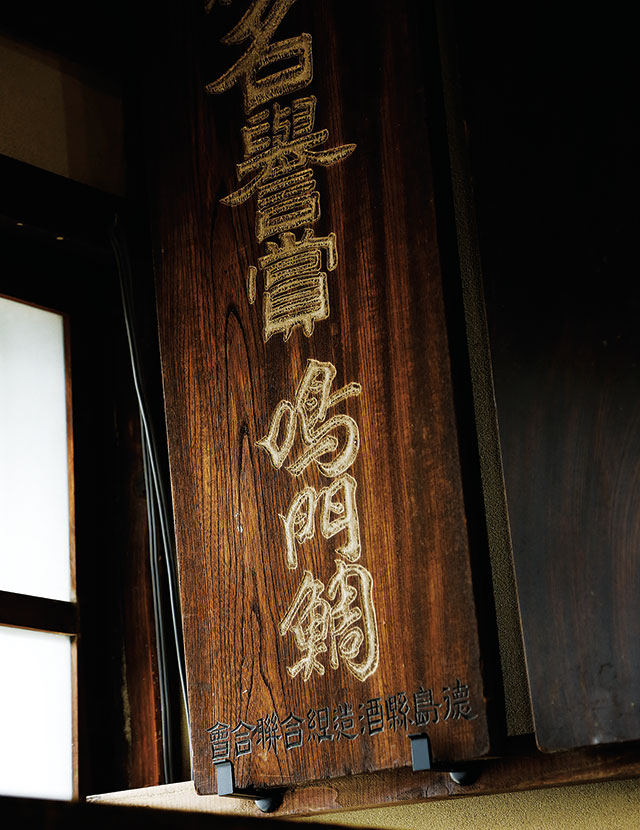 名譽賞
鳴門鯛
德島縣酒造組合聯合會